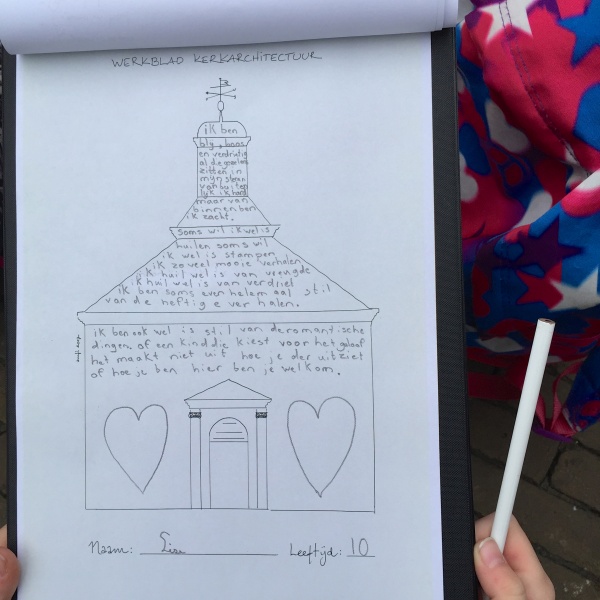 WERKBLAD KERKARCHITECTUUR
ik ben
bly, boos
en verdrietig
al die gevoelens
zitten in
mijn stenen
van buiten
lijk ik hard
maar van
binnen ben
ik zacht.
soms wil ik wel is
huilen soms wil
ik wel is stampen
ik zoveel mooie verhalen
ik huil wel is van vreugde
ik huil wel is van verdriet
ik ben soms even helemaal stil
van de heftige verhalen.
ik ben ook wel is stil van de romantische
dingen. of een kind die kiest voor het geloof
het maakt niet uit hoe je der uitziet
of hoe je ben hier ben je welkom.
Naam: Lisa Leeftijd: 10